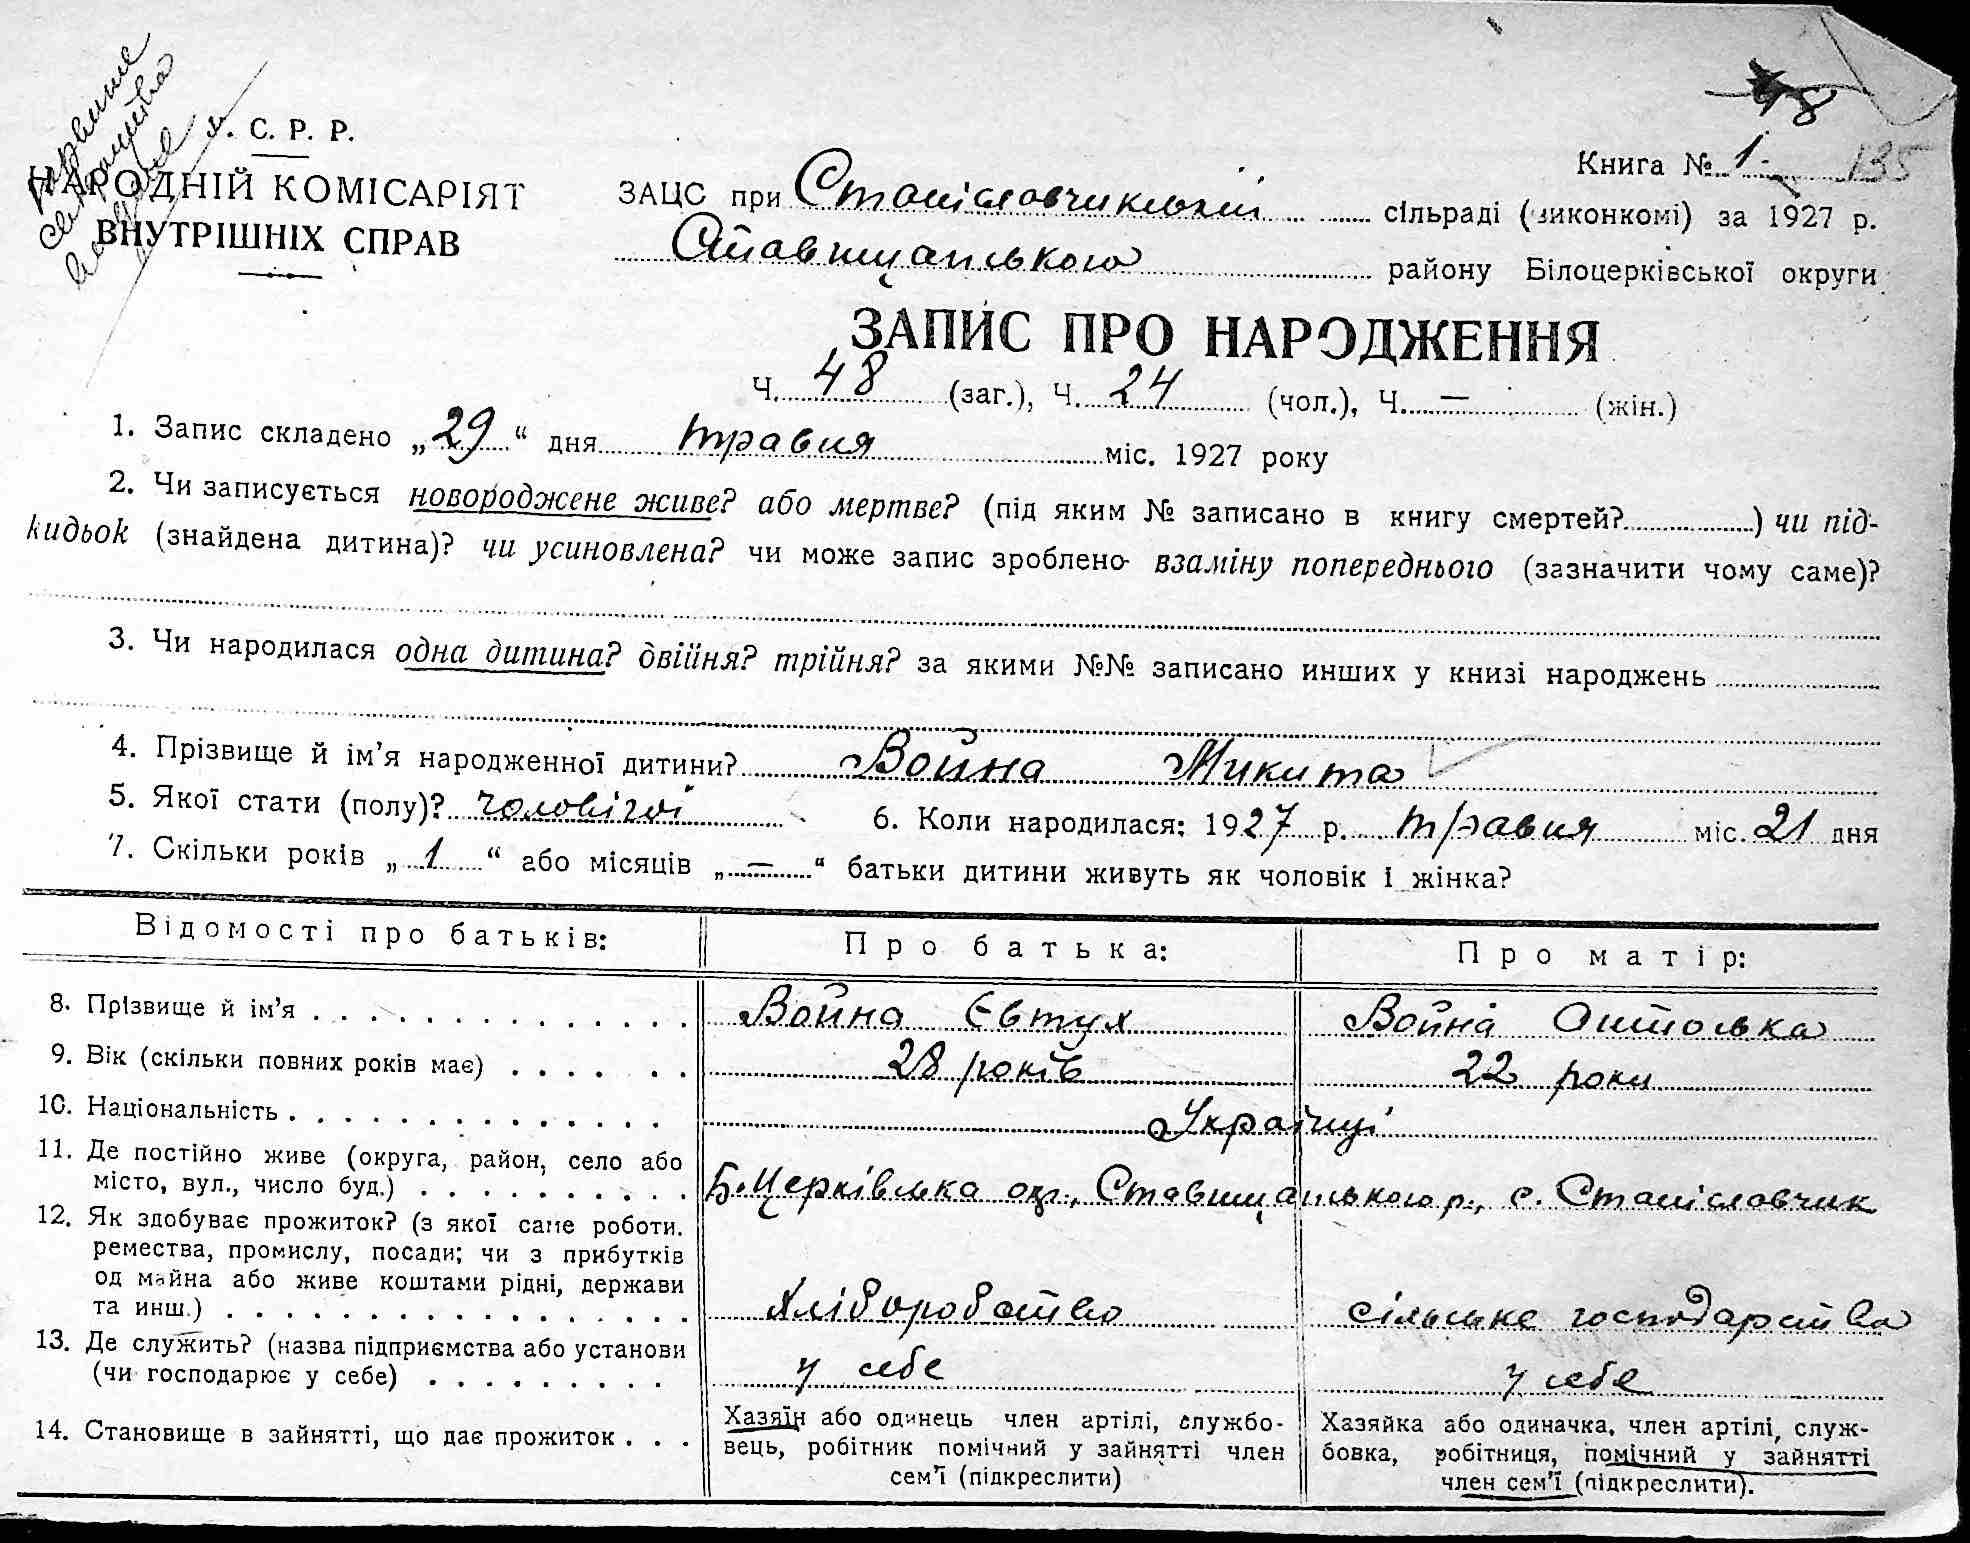 48
. С. Р. Р.
НАРОДНІЙ КОМІСАРІЯТ
ВНУТРІШНІХ СПРАВ
Книга № 1 135
ЗАЦС при Станіславчикській сільраді (виконкомі) за 1927 р.
Ставищанського району Білоцерківської округи
ЗАПИС ПРО НАРОДЖЕННЯ
Ч. 48 (заг.), Ч. 24 (чол.), Ч. — (жін.)
1. Запис складено „29“ дня травня міс. 1927 року
2. Чи записується новороджене живе? або мертве? (під яким № записано в книгу смертей? ) чи під-
кидьок (знайдена дитина)? чи усиновлена? чи може запис зроблено взаміну попереднього (зазначити чому саме)?
3. Чи народилася одна дитина? двійня? трійня? за якими №№ записано инших у книзі народжень
4. Прізвище й ім’я народженної дитини? Война Микита
5. Якої стати (полу)? чоловічої 6. Коли народилася: 1927 р. травня міс. 21 дня
7. Скільки років „1“ або місяців „—“ батьки дитини живуть як чоловік і жінка?
Відомості про батьків: Про батька: Про матір:
8. Прізвище й ім’я Война Євтух Война Антолька
9. Вік (скільки повних років має) 28 років 22 роки
10. Національність Українці
11. Де постійно живе (округа, район, село або
місто, вул., число буд.) Б.Церківська окр., Ставищанського р., с. Станіславчик
12. Як здобуває прожиток? (з якої саме роботи.
ремества, промислу, посади; чи з прибутків
од майна або живе коштами рідні, держави
та инш.) Хліборобство сільське господарство
13. Де служить? (назва підприємства або установи
(чи господарює у себе) у себе у себе
14. Становище в зайнятті, що дає прожиток
Хазяїн або одинець член артілі, службо-
вець, робітник помічний у зайнятті член
сем’ї (підкреслити)
Хазяйка або одиначка, член артілі, служ-
бовка, робітниця, помічний у зайнятті
член сем’ї (підкреслити).